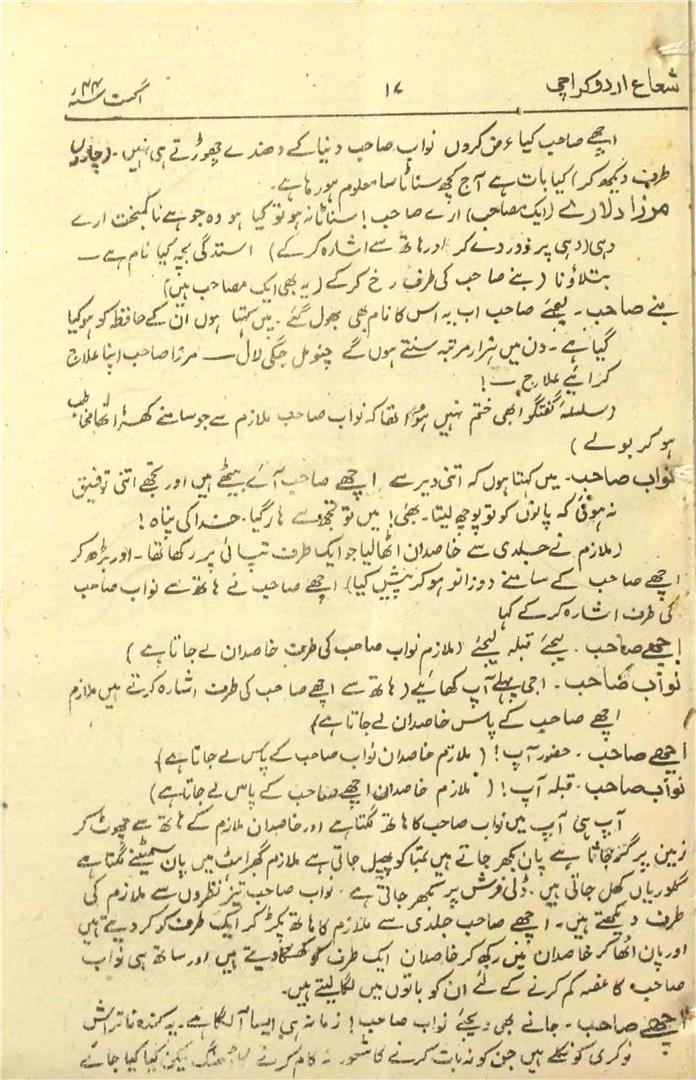 شعاع اردو کراچی ۱۷ اگست سنہ ۴۴ء
اچھے صاحب کیا عرض کروں نواب صاحب دنیا کے دھندے چھوڑتے ہی نہیں۔ (چاروں
طرف دیکھ کر) کیا بات ہے آج کچھ سناٹا سا معلوم ہو رہا ہے۔
مرزا دلارے (ایک مصاحب) ارے صاحب! سناٹا نہ ہو تو کیا ہو وہ جو ہے نا کمبخت ارے
وہی (وہی پر زور دے کر اور ہاتھ سے اشارہ کر کے) استدگی بچہ کیا نام ہے —
بتلاؤنا (بنے صاحب کی طرف رخ کر کے (یہ بھی ایک مصاحب ہیں)
بنے صاحب۔ لیجئے صاحب اب یہ اس کا نام بھی بھول گئے۔ میں کہتا ہوں ان کے حافظہ کو ہو کیا
گیا ہے۔ دن میں ہزار مرتبہ سنتے ہوں گے چنو مل جگی لال — مرزا صاحب اپنا علاج
کرائیے علاج —!
(سلسلۂ گفتگو ابھی ختم نہیں ہوا تھا کہ نواب صاحب ملازم سے جو سامنے کھڑا تھا مخاطب
ہو کر بولے)
نواب صاحب۔ میں کہتا ہوں کہ اتنی دیر سے اچھے صاحب آئے بیٹھے ہیں اور تجھے اتنی توفیق
نہ ہوئی کہ پانوں کو تو پوچھ لیتا۔ بھئی! میں تو تجھ سے ہار گیا۔ خدا کی پناہ!
(ملازم نے جلدی سے خاصدان اٹھا لیا جو ایک طرف تپائی پر رکھا تھا۔ اور بڑھ کر
اچھے صاحب کے سامنے دوزانو ہو کر پیش کیا) اچھے صاحب نے ہاتھ سے نواب صاحب
کی طرف اشارہ کر کے کہا
اچھے صاحب۔ لیجئے قبلہ لیجئے (ملازم نواب صاحب کی طرف خاصدان لے جاتا ہے)
نواب صاحب۔ اجی پہلے آپ کھائیے (ہاتھ سے اچھے صاحب کی طرف اشارہ کرتے ہیں ملازم
اچھے صاحب کے پاس خاصدان لے جاتا ہے)
اچھے صاحب۔ حضور آپ! (ملازم خاصدان نواب صاحب کے پاس لے جاتا ہے)
نواب صاحب۔ قبلہ آپ! (ملازم خاصدان اچھے صاحب کے پاس لے جاتا ہے)
آپ ہی آپ میں نواب صاحب کا ہاتھ لگتا ہے اور خاصدان ملازم کے ہاتھ سے چھوٹ کر
زمین پر گر جاتا ہے پان بکھر جاتے ہیں تمباکو پھیل جاتی ہے ملازم گھبراہٹ میں پان سمیٹنے لگتا ہے
گلوریاں کھل جاتی ہیں۔ ڈلی فرش پر بکھر جاتی ہے۔ نواب صاحب تیز نظروں سے ملازم کی
طرف دیکھتے ہیں۔ اچھے صاحب جلدی سے ملازم کا ہاتھ پکڑ کر ایک طرف کو کر دیتے ہیں
اور پان اٹھا کر خاصدان میں رکھ کر خاصدان ایک طرف کو کھسکا دیتے ہیں اور ساتھ ہی نواب
صاحب کا غصہ کم کرنے کے لئے ان کو باتوں میں لگا لیتے ہیں۔
اچھے صاحب۔ جانے بھی دیجئے نواب صاحب! زمانہ ہی ایسا آ لگا ہے۔ یہ کندۂ ناتراش
نوکری کو نکلے ہیں جن کو نہ بات کرنے کا شعور نہ کام کرنے کا ڈھنگ لیکن کیا کیا جائے